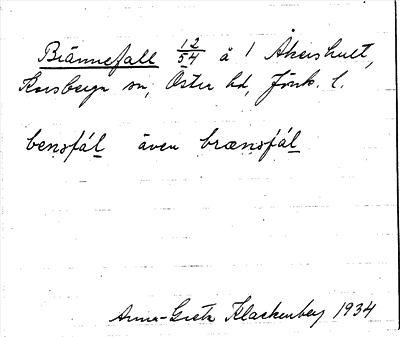 Brännefall 12/54 å 1 Åkershult,
Korsberga sn, Östra hd, Jönk. l.
bensfál även brænsfál
Anna-Greta Klackenberg 1934